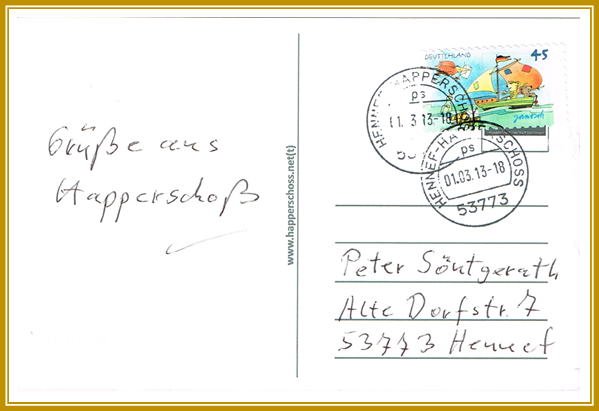 Grüße aus
Happerschoß
www.happerschoss.net(t)
DEUTSCHLAND 45
janosch
HENNEF-HAPPERSCHOSS
ps
01.03.13-18
53773
HENNEF-HAPPERSCHOSS
ps
01.03.13-18
53773
Peter Söntgerath
Alte Dorfstr. 7
53773 Hennef